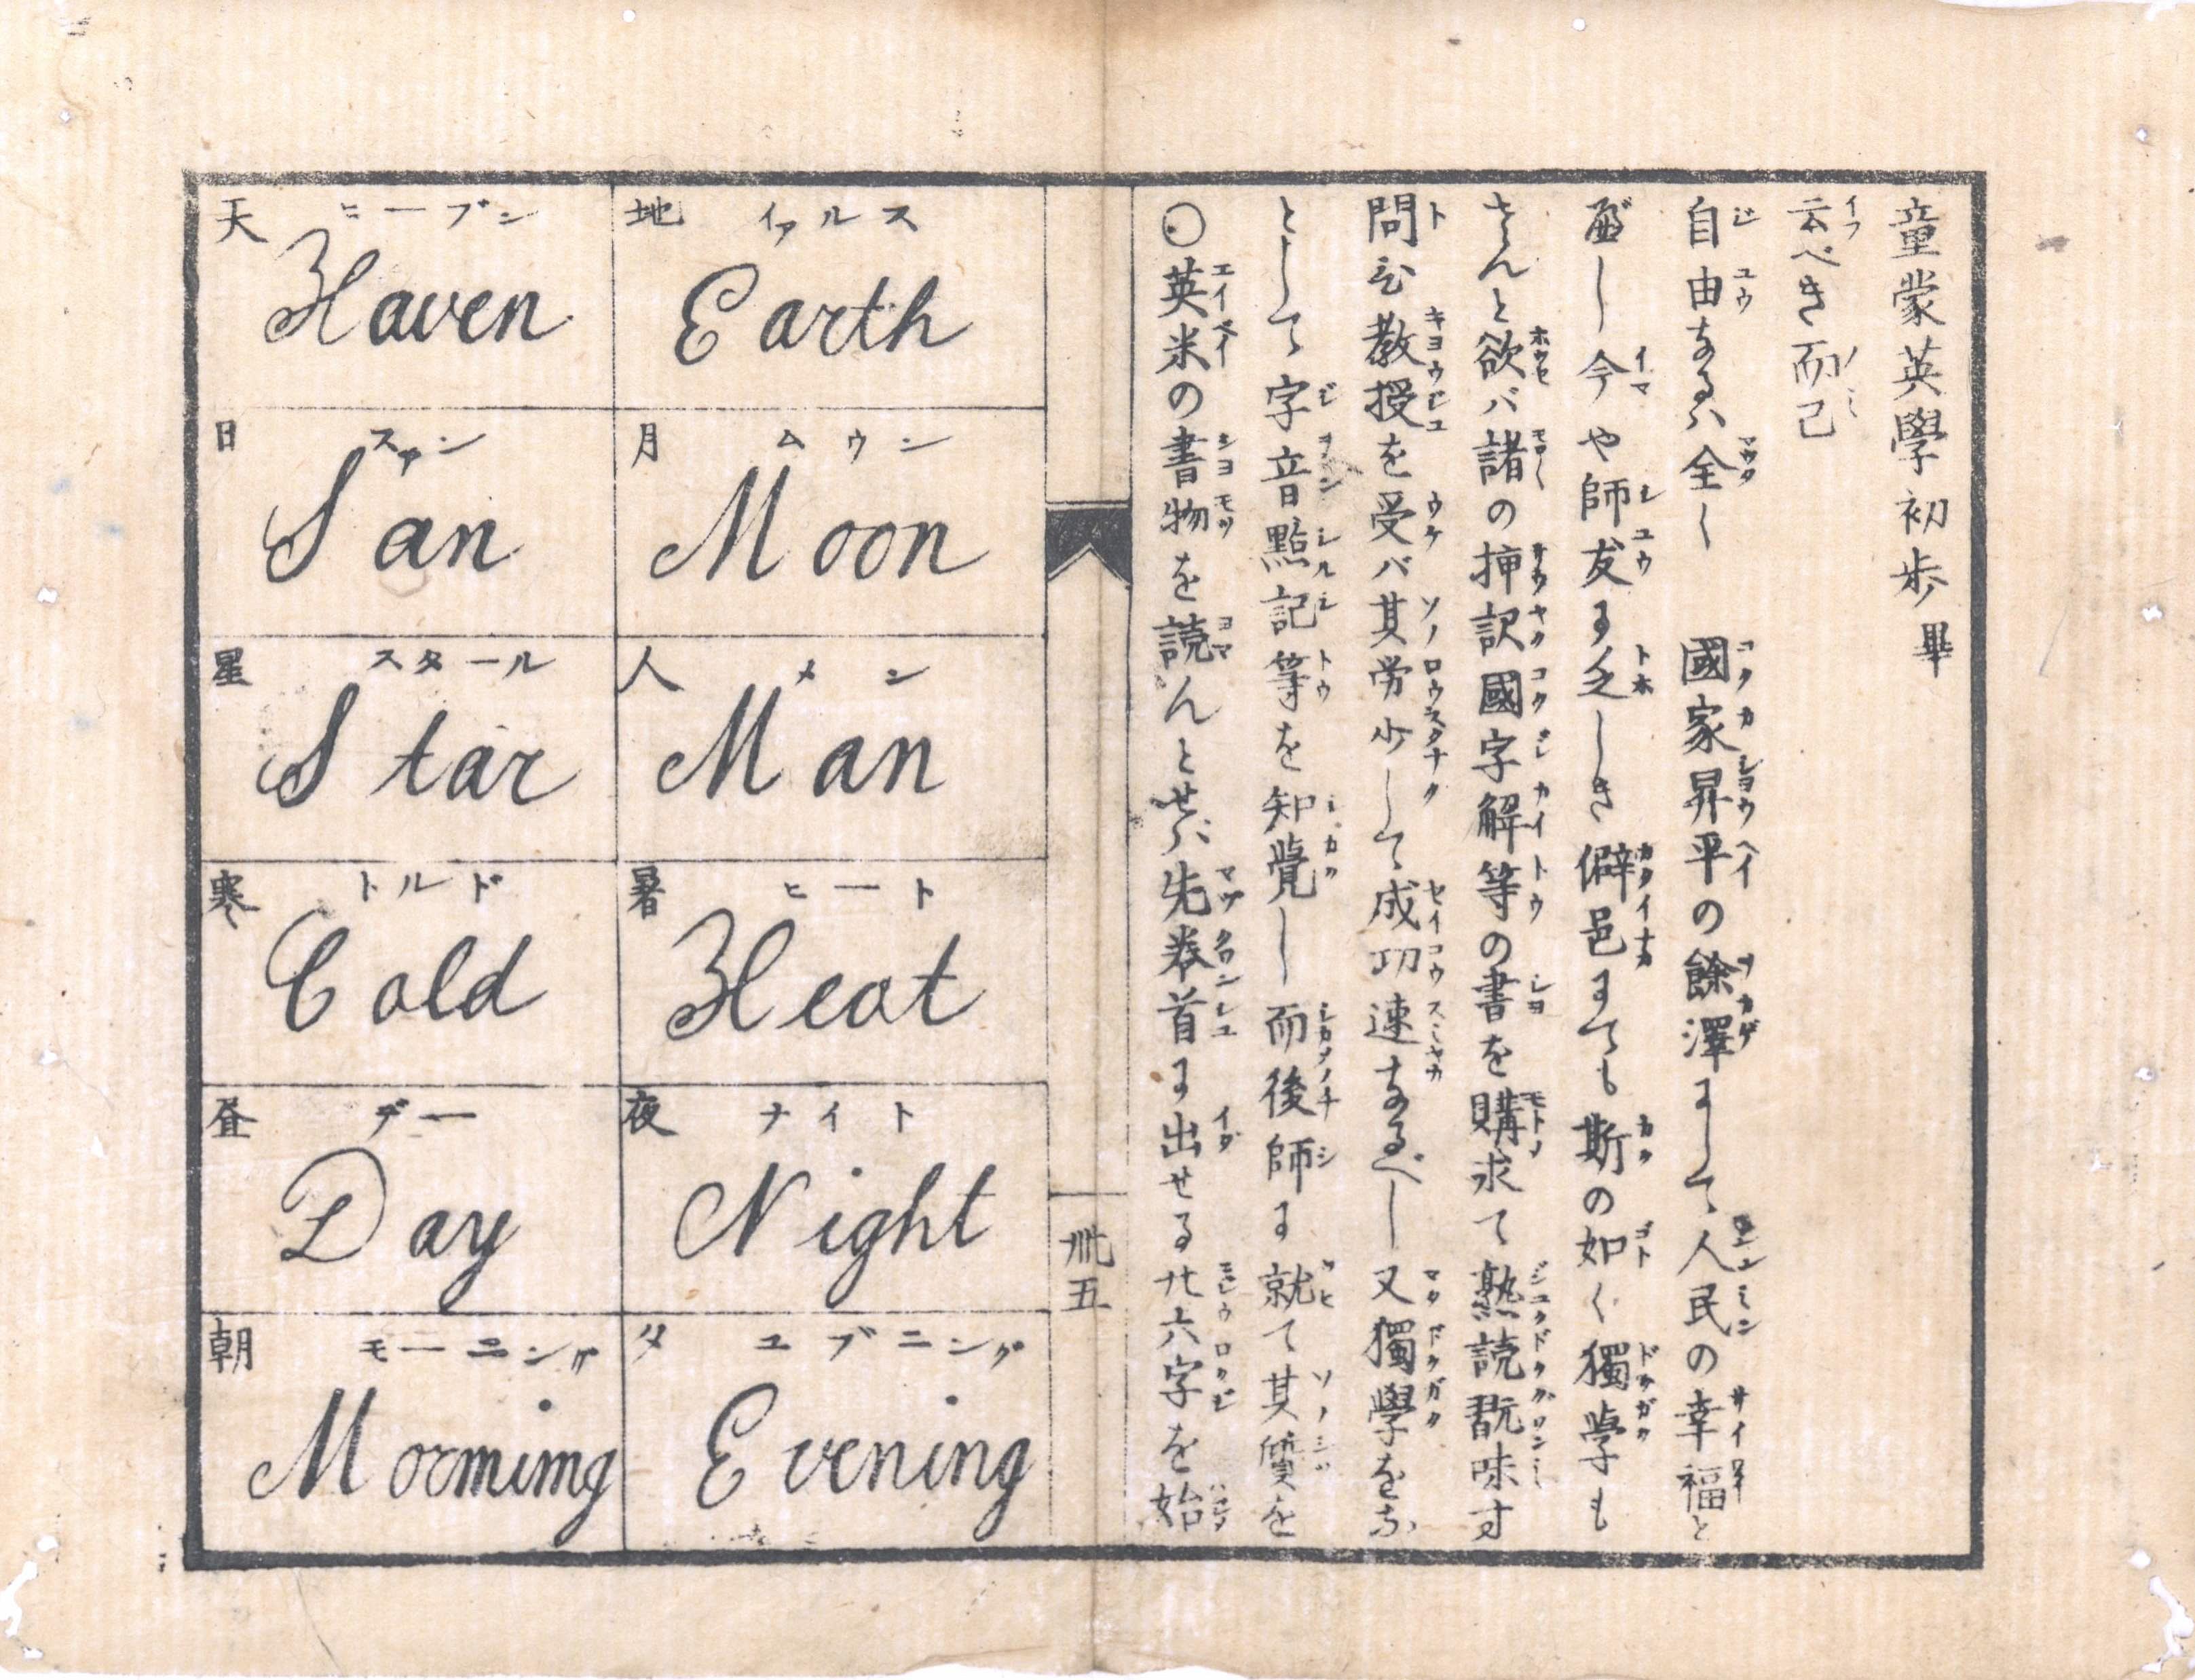 天 ヒーブン
Heaven
地 イアルス
Earth
日 スアン
San
月 ムウン
Moon
星 スタール
Star
人 メン
Man
寒 トルド
Cold
暑 ヒート
Heat
昼 デー
Day
夜 ナイト
Night
朝 モーニング
Morming
夕 ユブニング
Evening
卅五
○英米の書物を読んとせバ先巻首に出せる廿六字を始
として字音點記等を知覺し而後師に就て其質を
問ひ教授を受バ其労少して成功速なるべし又獨學をな
さんと欲バ諸の挿訳國字解等の書を購求て熟読翫味す
べし今や師友に乏しき僻邑にても斯の如く獨学も
自由なるハ全く 國家昇平の餘澤にして人民の幸福と
云べき而已
童蒙英學初歩 畢